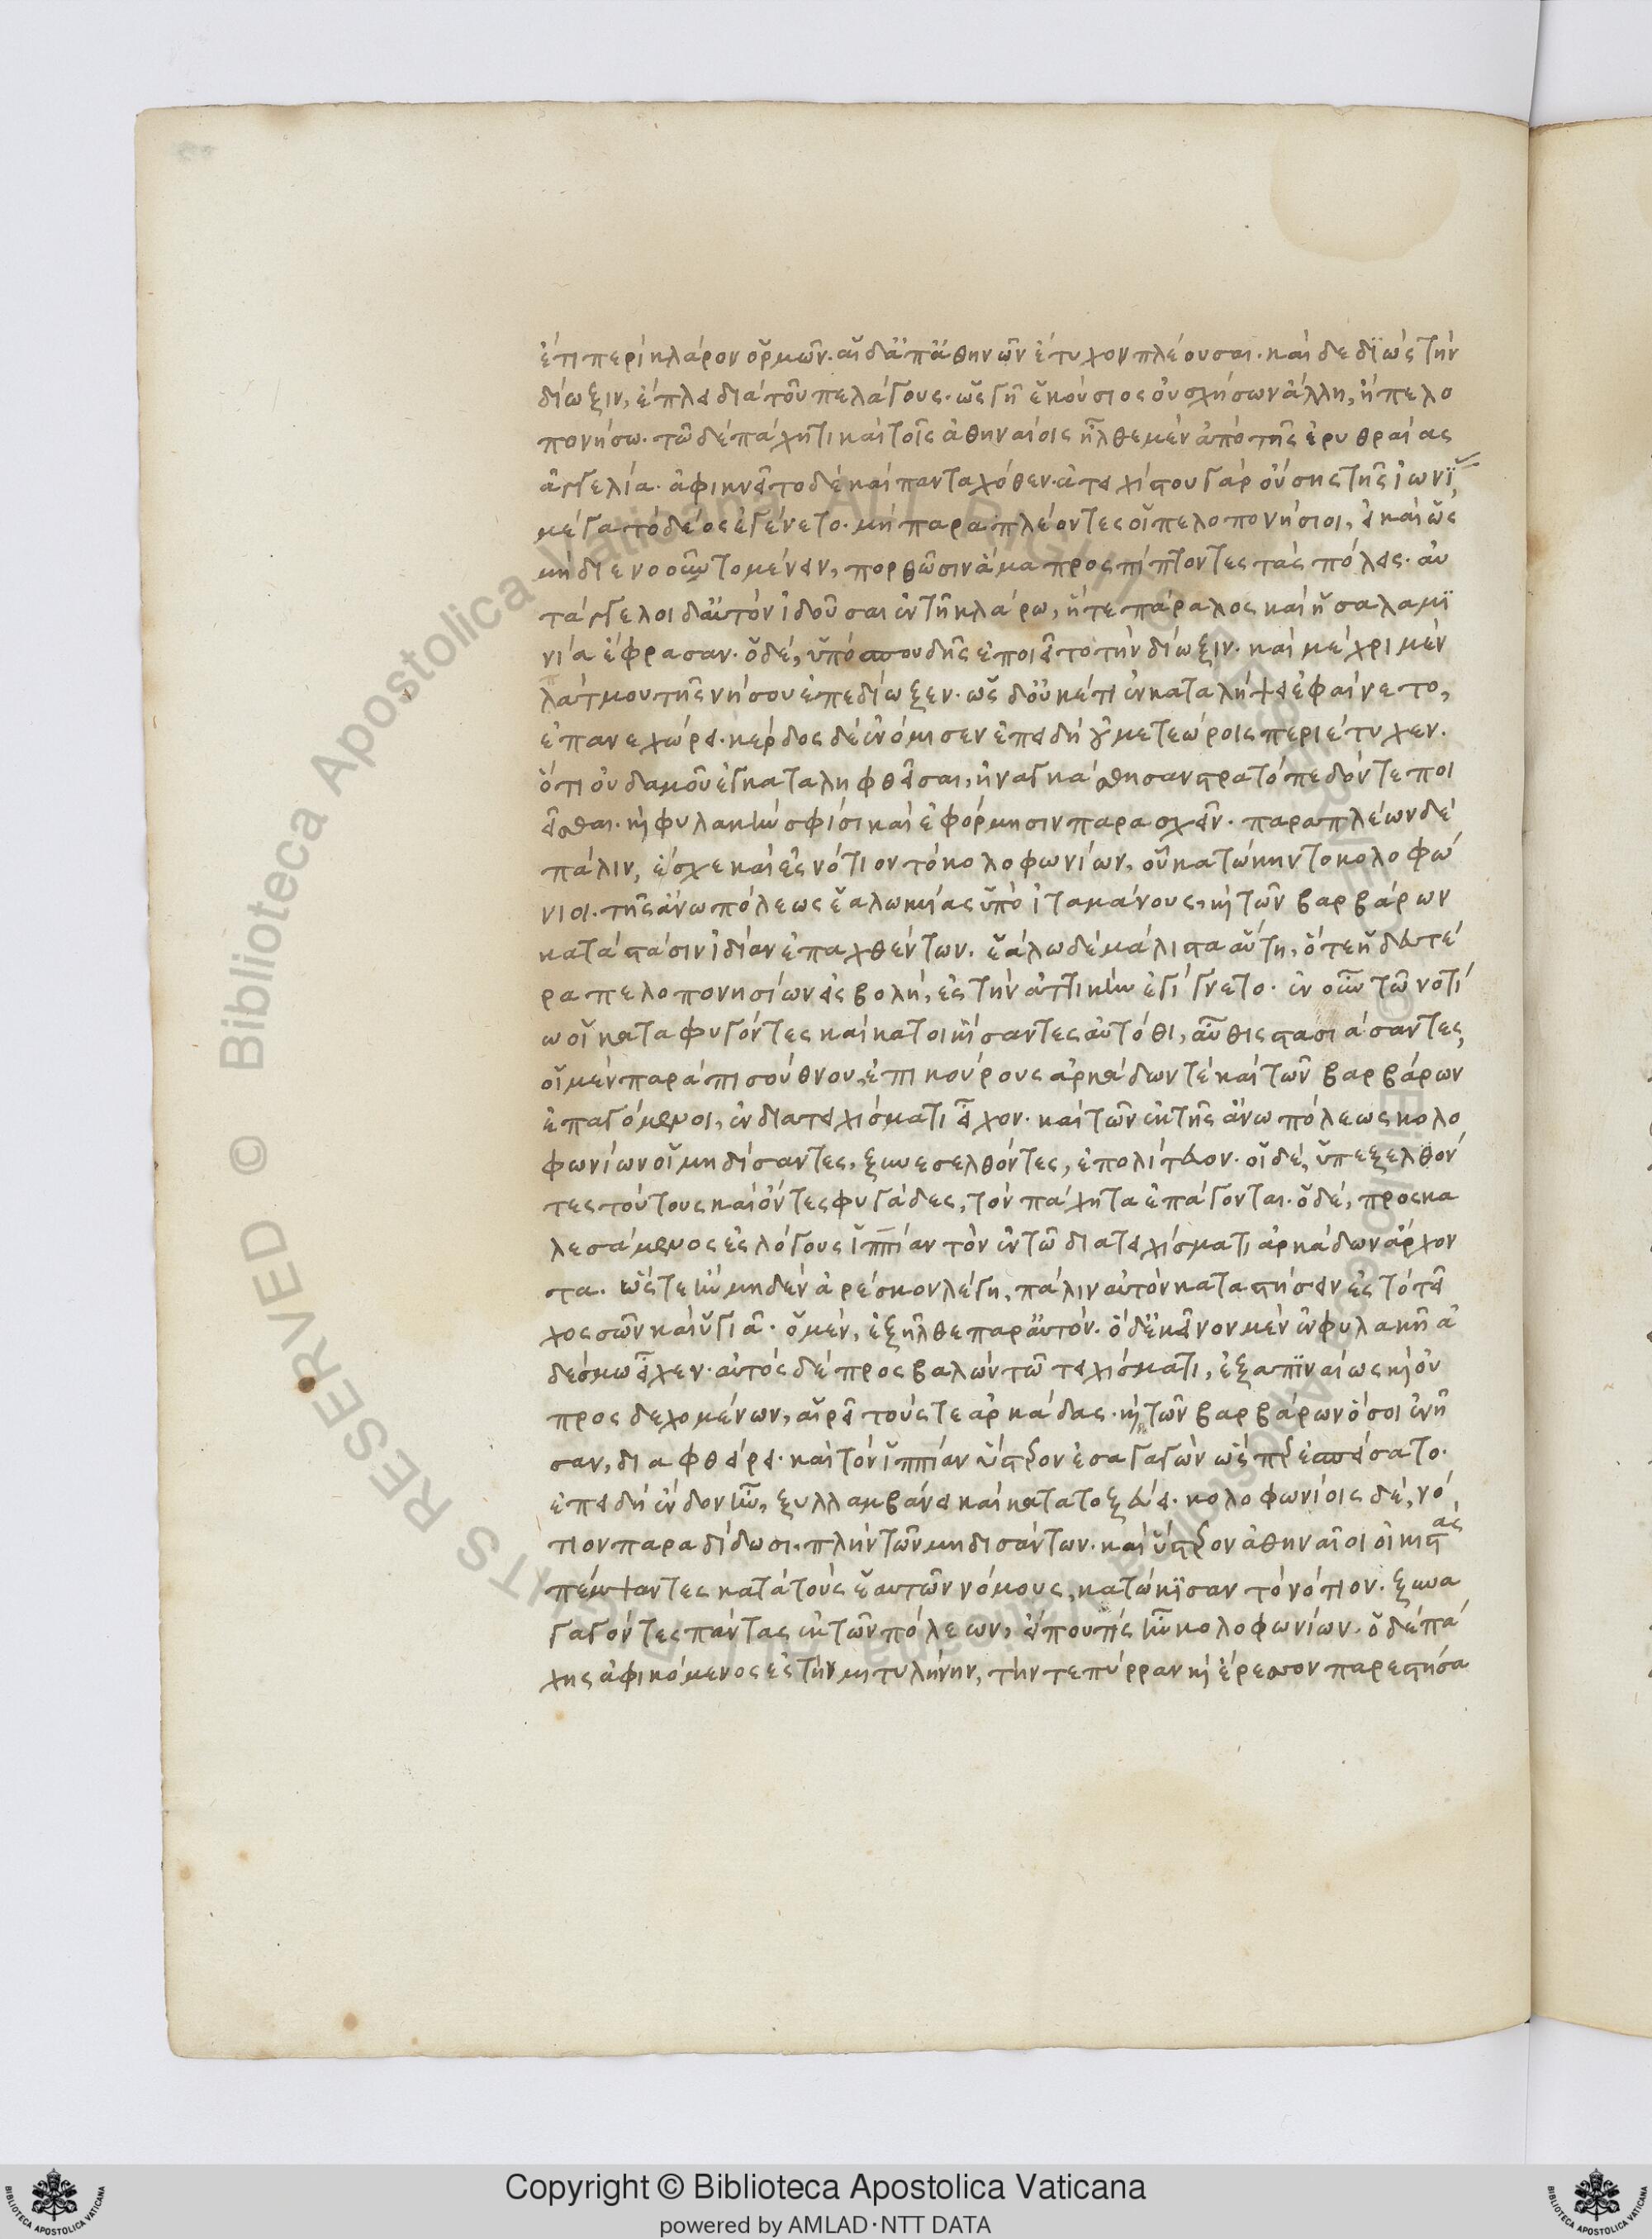 ἔτι περὶ κλάρον ὁρμῶν· αἳ δ' ἀπ' ἀθηνῶν ἔτυχον πλέουσαι· καὶ δεδιὼς τὴν
δίωξιν, ἔπλει διὰ τοῦ πελάγους· ὡς γῆ ἑκούσιος οὐ σχήσων ἄλλη, ἢ πελο
πονήσω· τῶ δὲ πάχητι καὶ τοῖς ἀθηναίοις ἦλθε μὲν ἀπὸ τῆς ἐρυθραίας
ἀγγελία· ἀφικνεῖτο δὲ καὶ πανταχόθεν· ἀτειχίστου γὰρ οὔσης τῆς ἰωνί
μέγα τὸ δέος ἐγένετο· μὴ παραπλέοντες οἱ πελοπονήσιοι, εἰ καὶ ὣς
μὴ διενοοῦντο μένειν, πορθῶσιν ἅμα προσπίπτοντες τὰς πόλεις· αὐ
τάγγελοι δ' αὐτὸν ἰδοῦσαι ἐν τῆ κλάρω, ἥ τε πάραλος καὶ ἡ σαλαμι
νία ἔφρασαν· ὁ δὲ, ὑπὸ σπουδῆς ἐποιεῖτο τὴν δίωξιν· καὶ μέχρι μὲν
λάτμου τῆς νήσου ἐπεδίωξεν· ὡς δ' οὐκέτι ἐν καταλήψει ἐφαίνετο,
ἐπανεχώρει· κέρδος δὲ ἐνόμισεν ἐπειδὴ οὐ μετεώροις περιέτυχεν·
ὅτι οὐδαμοῦ ἐγκαταληφθεῖσαι, ἠναγκάσθησαν στρατόπεδόν τε ποι
εῖσθαι· κ φυλακὴν σφίσι καὶ ἐφόρμησιν παρασχεῖν· παραπλέων δὲ
πάλιν, ἔσχε καὶ ἐς νότιον τὸ κολοφωνίων, οὗ κατώκηντο κολοφώ
νιοι· τῆς ἄνω πόλεως ἑαλωκυίας ὑπὸ ἰταμάνους, κ τῶν βαρβάρων
κατὰ στάσιν ἰδίαν ἐπαχθέντων. ἑάλω δὲ μάλιστα αὕτη, ὅτε ἡ δευτέ
ρα πελοπονησίων εἰσβολὴ, ἐς τὴν ἀττικὴν ἐγίγνετο· ἐν οὖν τῶ νοτί
ω οἱ καταφυγόντες καὶ κατοικήσαντες αὐτόθι, αὖθις στασιάσαντες,
οἱ μὲν παρὰ πισούθνου, ἐπικούρους ἀρκάδων τὲ καὶ τῶν βαρβάρων
ἐπαγόμενοι, ἐν διατειχίσματι εἶχον· καὶ τῶν ἐκ τῆς ἄνω πόλεως κολο
φωνίων οἱ μηδίσαντες, ξυνεσελθόντες, ἐπολίτευον· οἱ δὲ, ὑπεξελθόν
τες τούτους καὶ ὄντες φυγάδες, τὸν πάχητα ἐπάγονται· ὁ δὲ, προσκα
λεσάμενος ἐς λόγους ἱππίαν τὸν ἐν τῶ διατειχίσματι ἀρκάδων ἄρχον
τα· ὥστε ἢν μηδὲν ἀρέσκον λέγη, πάλιν αὐτὸν καταστήσειν ἐς τὸ τεῖ
χος σῶν καὶ ὑγιᾶ· ὁ μὲν, ἐξῆλθε παρ' αὐτόν· ὁ δ' ἐκεῖνον μὲν ἐν φυλακῆ ἀ
δέσμω εἶχεν· αὐτὸς δὲ προσβαλὼν τῶ τειχίσματι, ἐξαπιναίως κ οὐ
προσδεχομένων, αἱρεῖ τούς τε ἀρκάδας· κ τῶν βαρβάρων ὅσοι ἐνῆ
σαν, διαφθείρει· καὶ τὸν ἱππίαν ὕστερον ἐσαγαγὼν ὥσπερ ἐσπείσατο·
ἐπειδὴ ἔνδον ἦν, ξυλλαμβάνει καὶ κατατοξεύει· κολοφωνίοις δὲ, νό
τιον παραδίδωσι, πλὴν τῶν μηδισάντων· καὶ ὕστερον ἀθηναῖοι οἰκιστὰς
πέμψαντες κατὰ τοὺς ἑαυτῶν νόμους, κατώκισαν τὸ νότιον· ξυνα
γαγόντες πάντας ἐκ τῶν πόλεων, εἴπου τίς ἦν κολοφωνίων. ὁ δὲ πά
χης ἀφικόμενος ἐς τὴν μιτυλήνην, τήν τε πύρραν κ ἔρεσον παρεστήσα
Copyright © Biblioteca Apostolica Vaticana
powered by AMLAD·NTT DATA